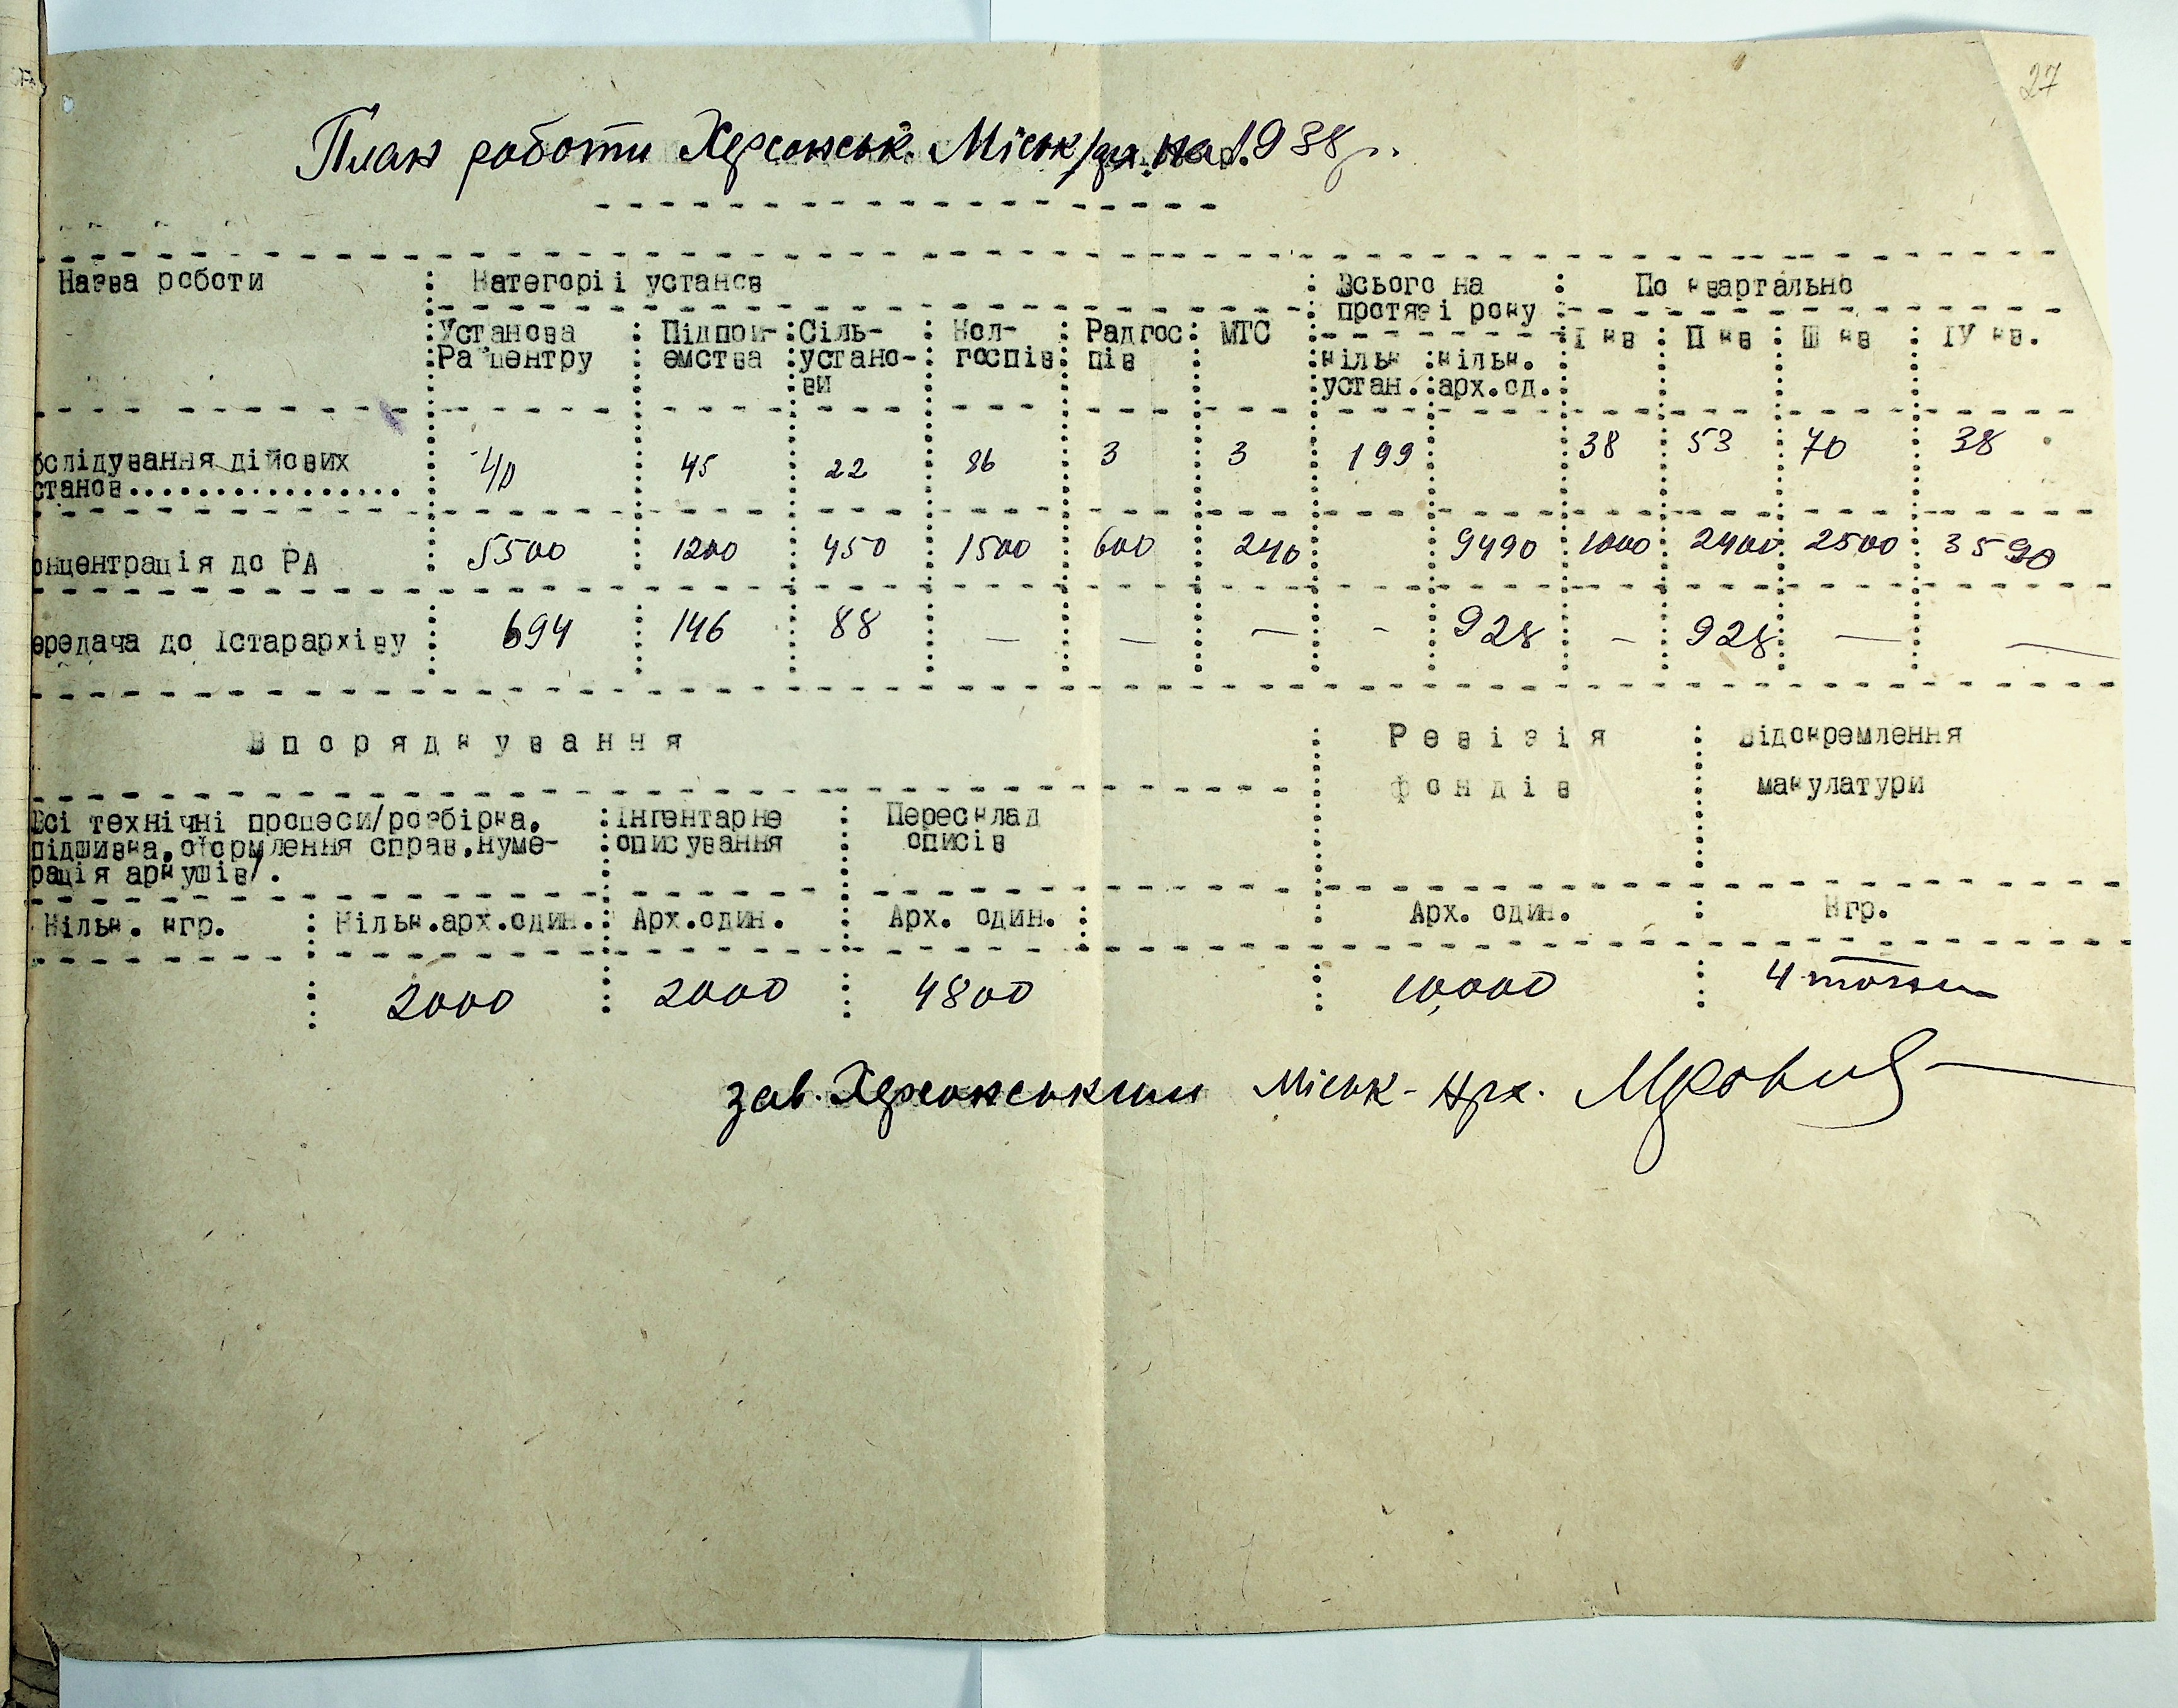 27
План роботи Херсонськ. Міськ/рх. на 1938 р.
Назва роботи : Категорії установ : Всього на протязі року : По квартально
Установа Райцентру : Підпри-ємства : Сіль-устано-ви : Кол-госпів : Радгос пів : МТС : кільк устан. : кільк. арх.од. : І кв : П кв : Ш кв : ІУ кв.
бслідування дійових
станов................ : 40 : 45 : 22 : 86 : 3 : 3 : 199 : : 38 : 53 : 70 : 38
онцентрація до РА : 5500 : 1200 : 450 : 1500 : 600 : 240 : : 9490 : 1000 : 2400 : 2500 : 3590
ередача до Істарархіву : 694 : 146 : 88 : — : — : — : - : 928 : - : 928 : — : —
Впорядкування : Ревізія фондів : Відокремлення макулатури
Всі технічні процеси/розбірка, : Інвентарне : Пересклад
підшивка,оформлення справ,нуме- : описування : описів
рація аркушів/.
Кільк. кгр. : Кільк.арх.один. : Арх.один. : Арх. один. : Арх. один. : Кгр.
2000 : 2000 : 4800 : 10,000 : 4 тонни
зав. Херсонським Міськ-Арх.